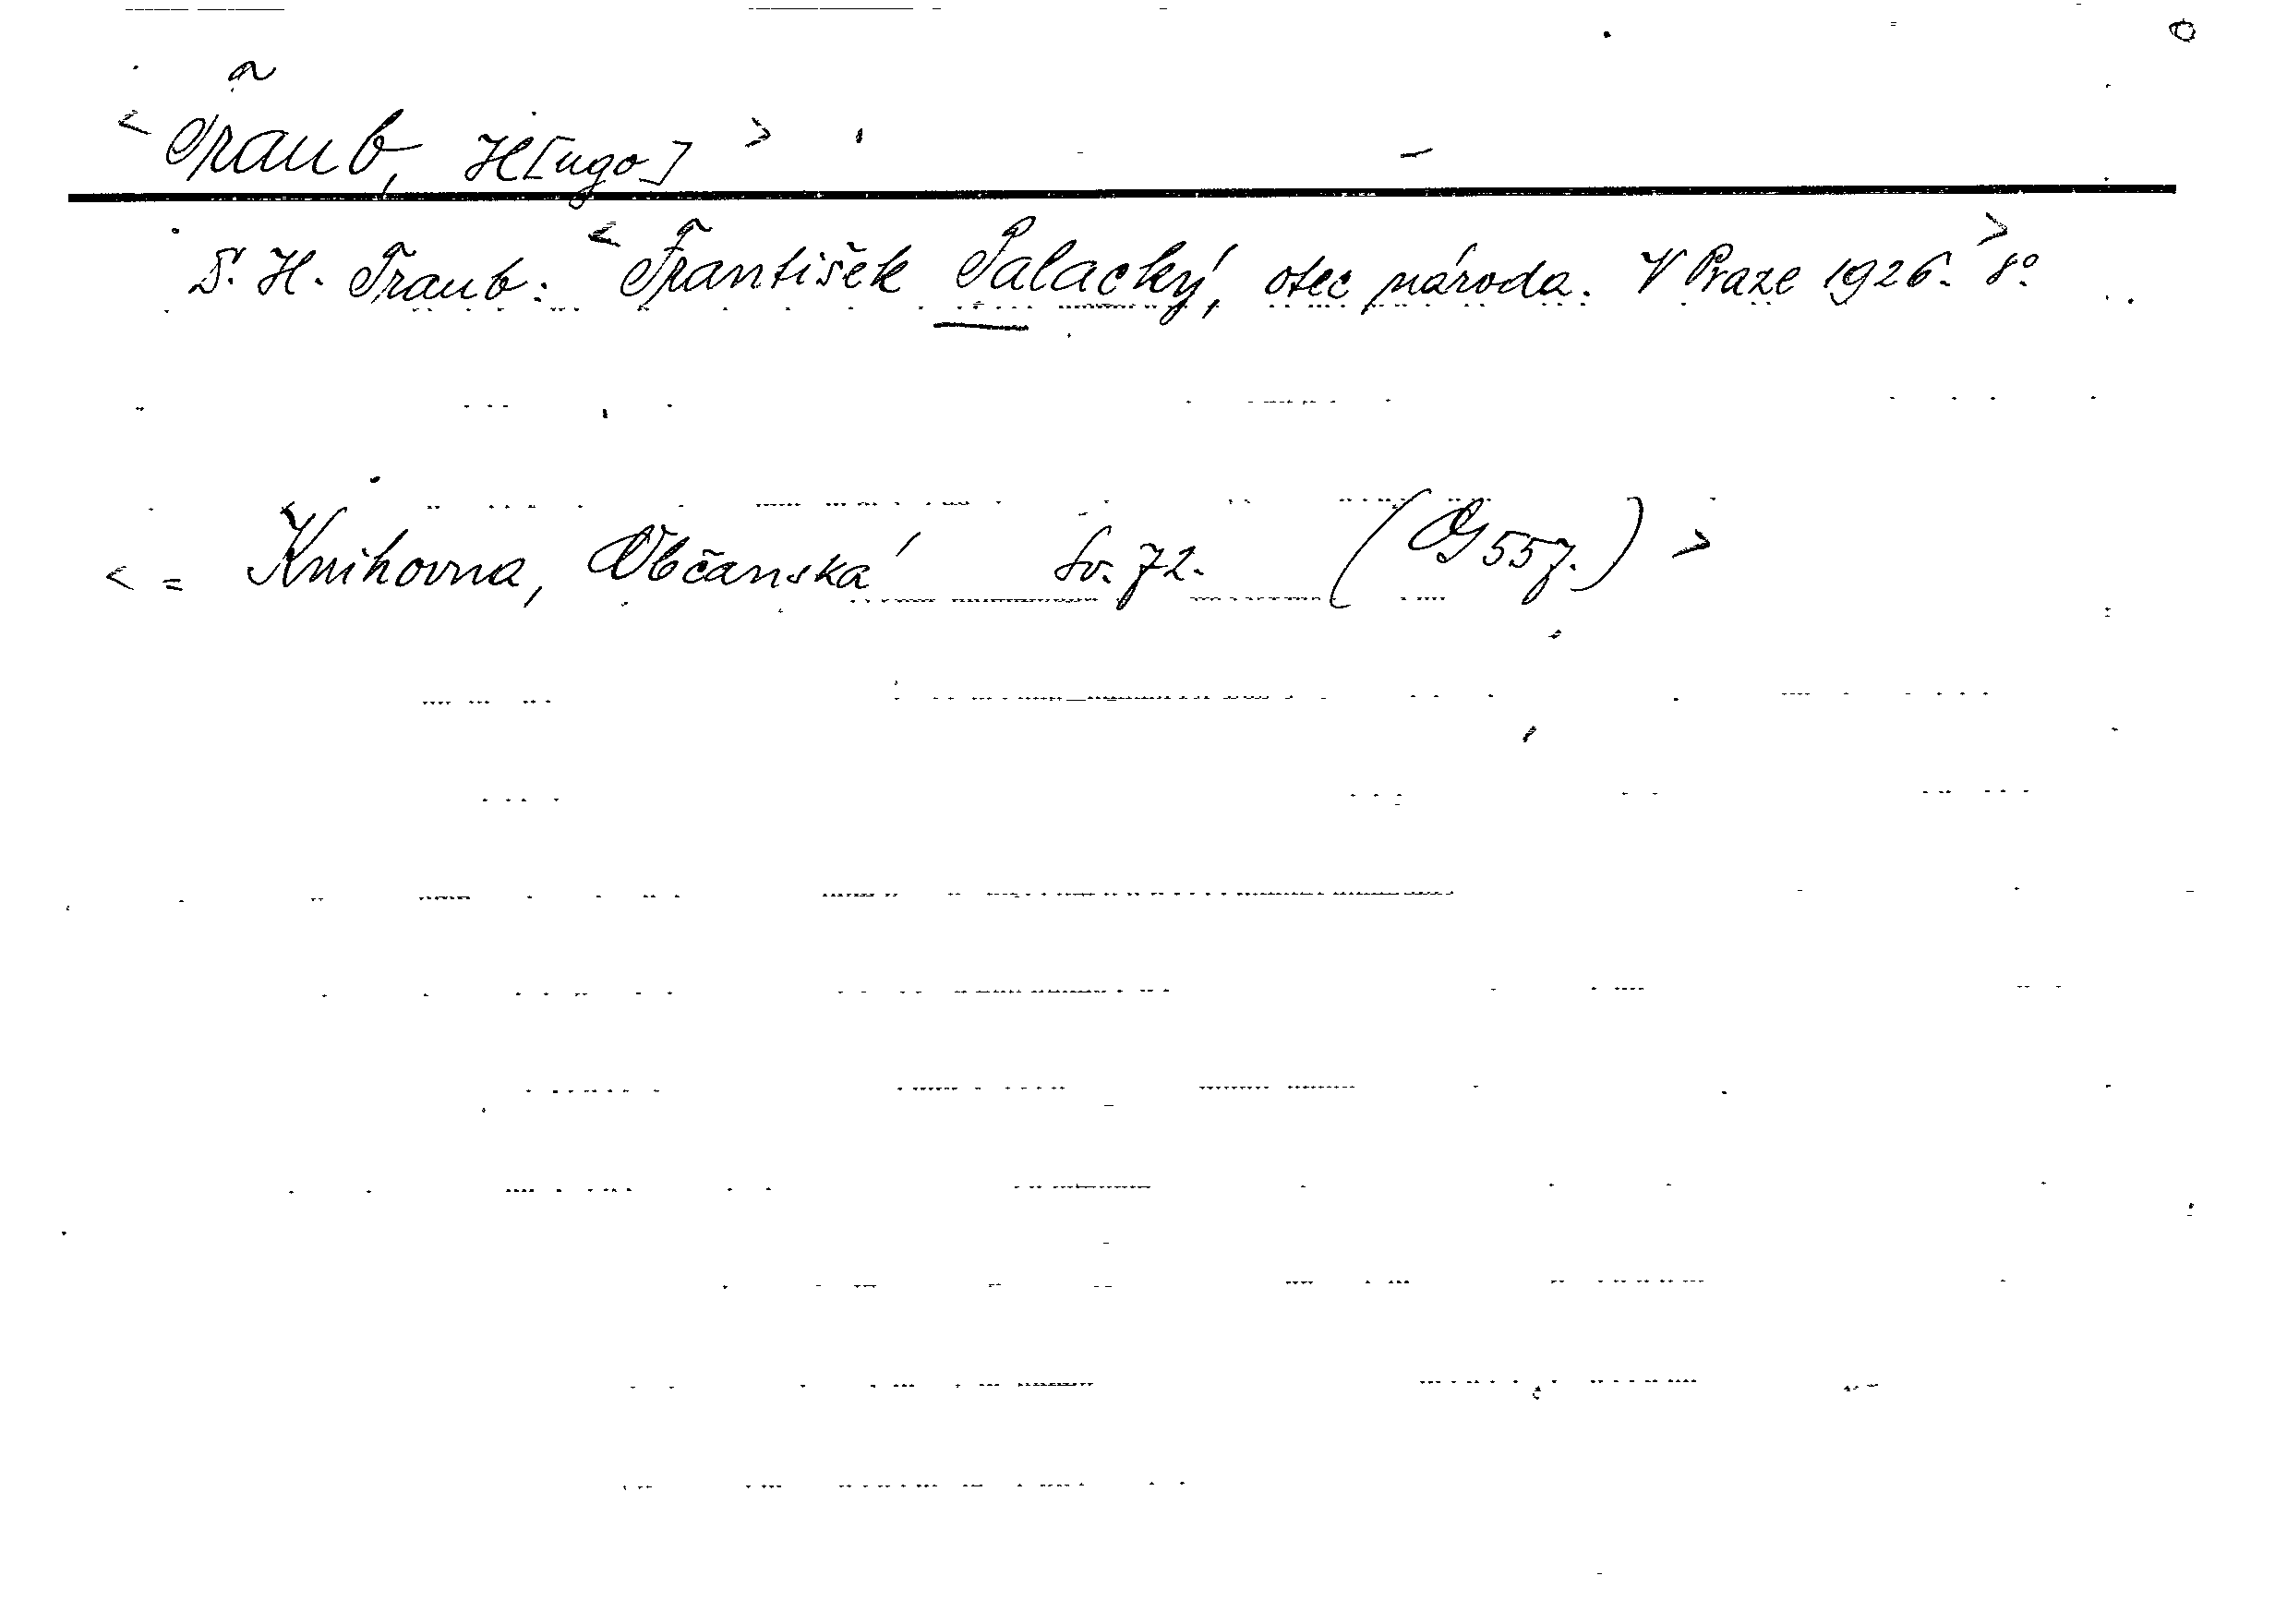 < Traub, H[ugo] >
D. H. Traub: < František Palacký, otec národa. V Praze 1926. > 8°
< = Knihovna, Občanská Sv. 72. ( 557.) >